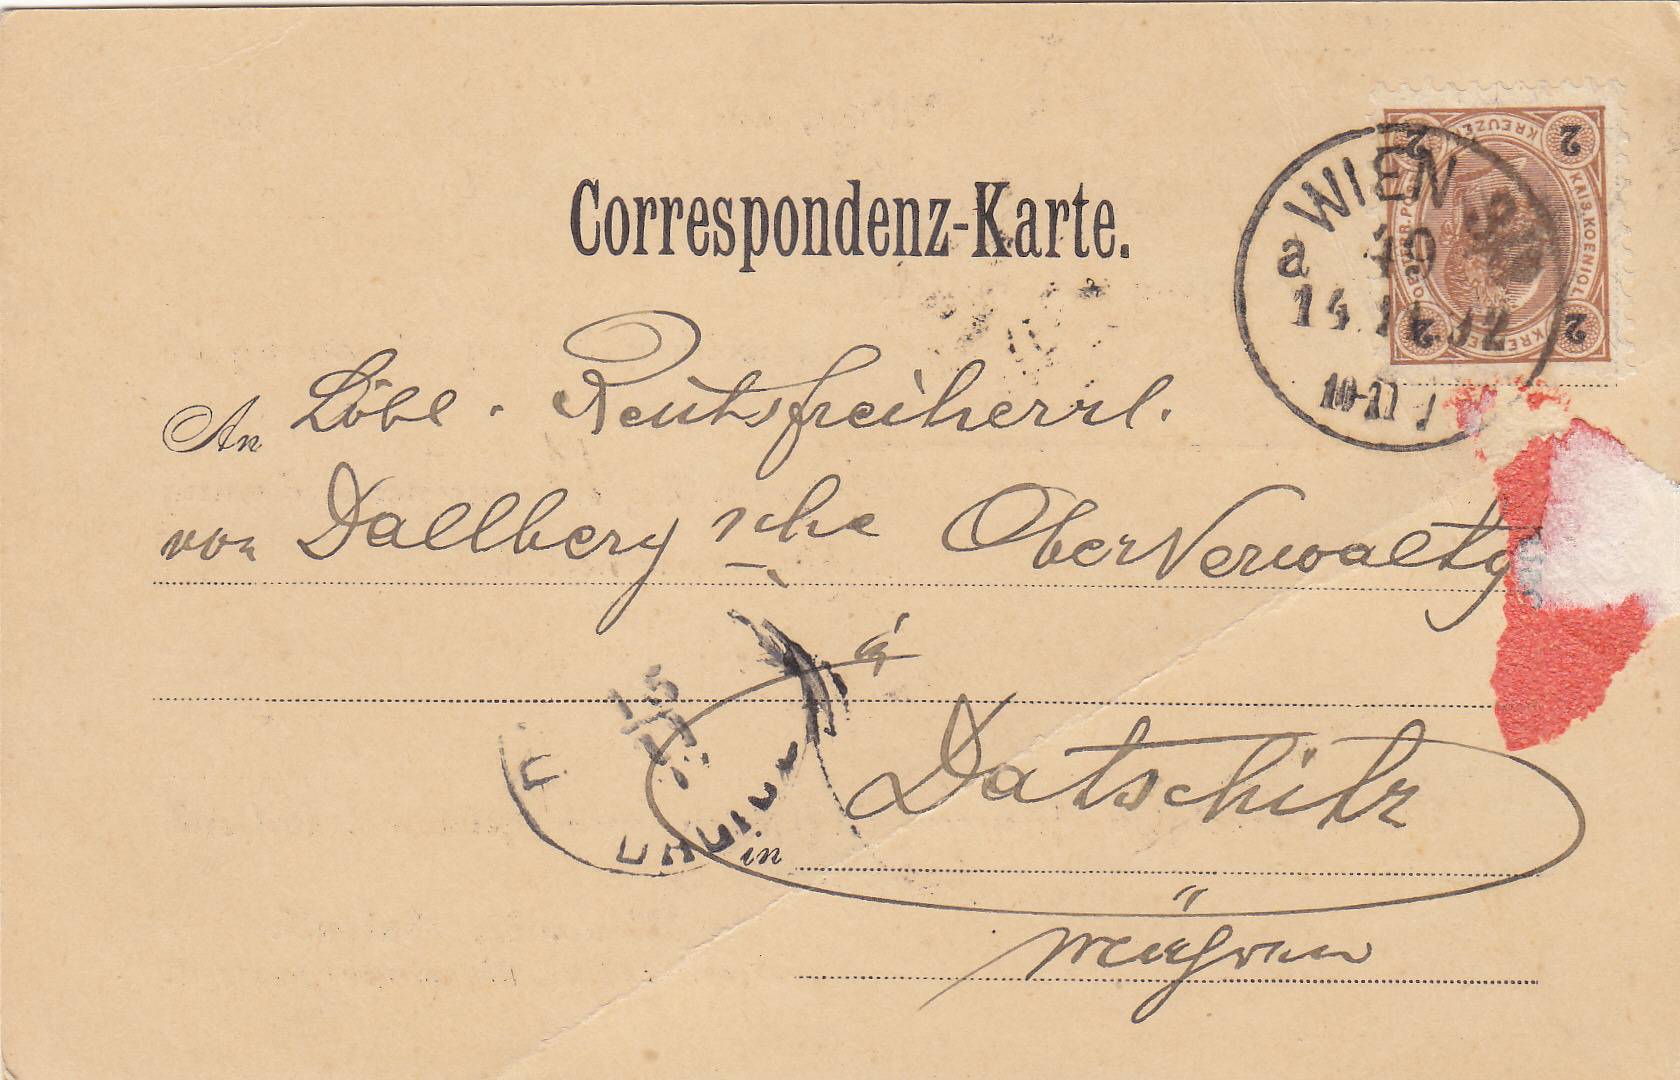 Correspondenz-Karte.
WIEN
a 40
10-11
2 KREUZER 2
KAIS. KOENIGL.
2 2
An Löbl. Reichsfreiherrl.
von Dallberg'sche OberVerwaltg
in Datschitz
Mähren